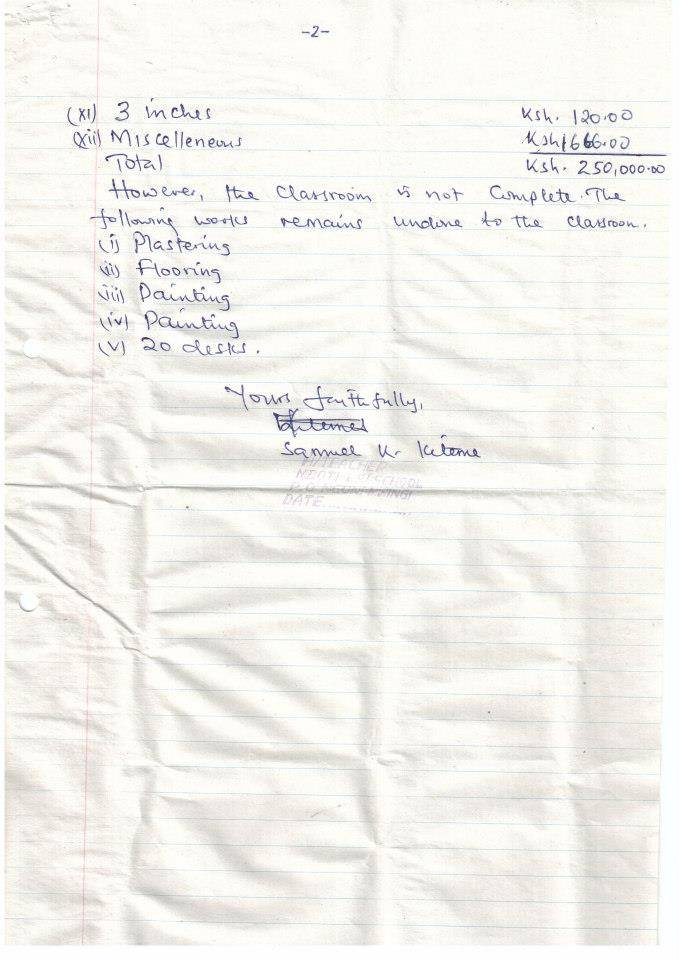 -2-
(xi) 3 inches Ksh. 120.00
(xii) Miscelleneous Ksh 1666.00
Total Ksh. 250,000.00
However, the classroom is not complete. The
following works remains undone to the classroom.
(i) Plastering
(ii) Flooring
(iii) Painting
(iv) Painting
(v) 20 desks.
Yours faithfully,
Samuel K. Kiteme
H/TEACHER
DATE